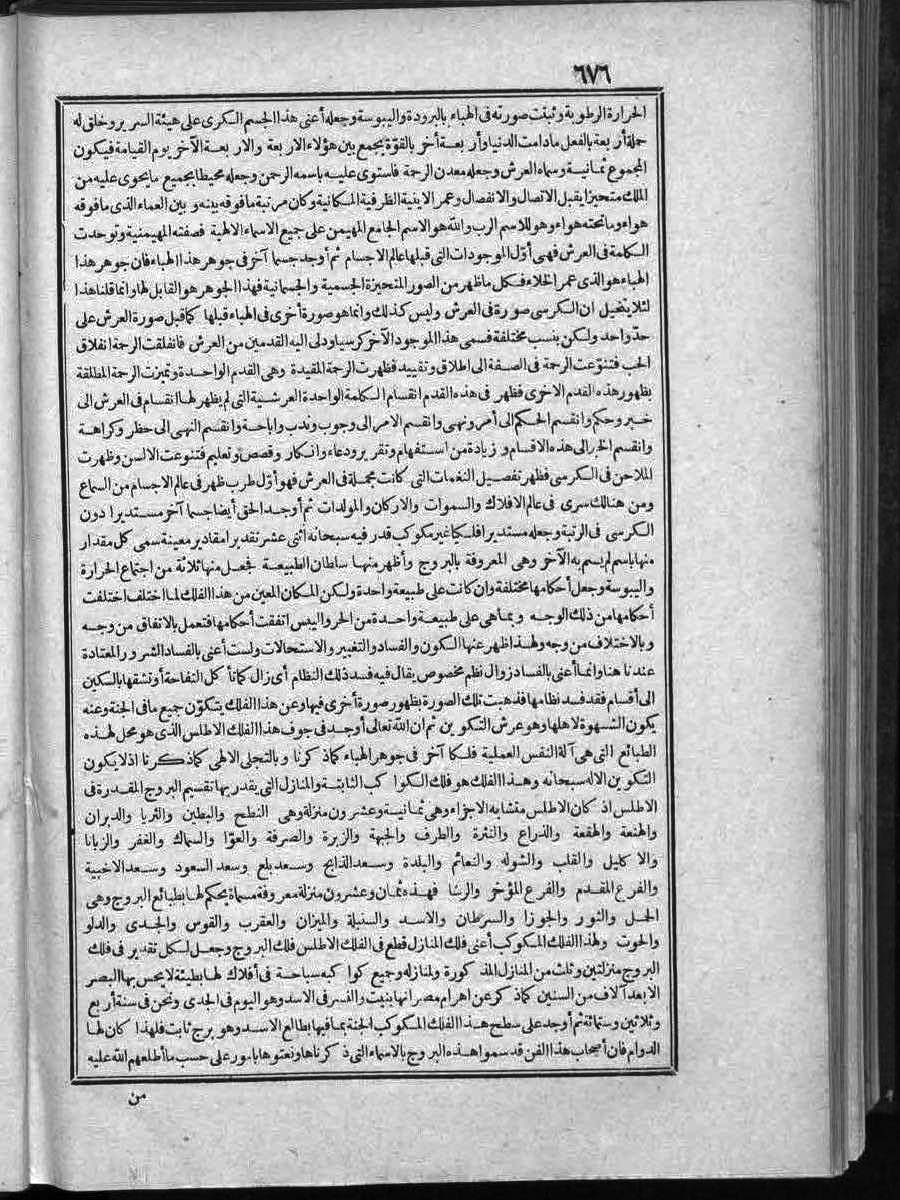 ٦٧٦
الحرارة الرطوبة وثبتت صورته فى الهباء بالبرودة واليبوسة وجعله أعنى هذا الجسم الكرى على هيئة السرير وخلق له
حملة أربعة بالفعل مادامت الدنيا وأربعة أخر بالقوّة يجمع بين هؤلاء الاربعة والاربعة الآخر يوم القيامة فيكون
المجموع ثمانية وسماه العرش وجعله معدن الرحمة فاستوى عليه باسمه الرحمن وجعله محيطا بجميع ما يحوى عليه من
الملك متحيزا يقبل الاتصال والانفصال وعمر الاينية الظرفية المكانية وكان مرتبة ما فوقه بينه وبين العماء الذى ما فوقه
هواء وما تحته هواء وهو للاسم الرب والله هو الاسم الجامع المهيمن على جميع الاسماء الالهية فصفته المهيمنية وتوحدت
الكلمة فى العرش فهى أوّل الموجودات التى قبلها عالم الاجسام ثم أوجد جسما آخر فى جوهر هذا الهباء فان جوهر هذا
الهباء هو الذى عمر الخلاء فكل ما ظهر من الصور المتحيزة الجسمية والجسمانية فهذا الجوهر هو القابل لها وانما قلنا هذا
لئلا يتخيل ان الكرسى صورة فى العرش وليس كذلك وانما هو صورة أخرى فى الهباء قبلها كما قبل صورة العرش على
حدّ واحد ولكن بنسب مختلفة فسمى هذا الموجود الآخر كرسيا ودلى اليه القدمين من العرش فانفلقت الرحمة انفلاق
الحب فتنوّعت الرحمة فى الصفة الى اطلاق وتقييد فظهرت الرحمة المقيدة وهى القدم الواحدة وتميزت الرحمة المطلقة
بظهور هذه القدم الاخرى فظهر فى هذه القدم انقسام الكلمة الواحدة العرشية التى لم يظهر لها انقسام فى العرش الى
خبر وحكم وانقسم الحكم الى أمر ونهى وانقسم الامر الى وجوب وندب واباحة وانقسم النهى الى حظر وكراهة
وانقسم الخبر الى هذه الاقسام وزيادة من استفهام وتقرير ودعاء وانكار وقصص وتعليم فتنوعت الالسن وظهرت
الملاحن فى الكرسى فظهر تفصيل النغمات التى كانت مجملة فى العرش فهو أوّل طرب ظهر فى عالم الاجسام من السماع
ومن هنالك سرى فى عالم الافلاك والسموات والاركان والمولدات ثم أوجد الحق أيضا جسما آخر مستديرا دون
الكرسى فى الرتبة وجعله مستديرا فلكا غير مكوكب قدر فيه سبحانه اثنى عشر تقديرا مقادير معينة سمى كل مقدار
منها باسم لم يسم به الآخر وهى المعروفة بالبروج وأظهر منها سلطان الطبيعة فجعل منها ثلاثة من اجتماع الحرارة
واليبوسة وجعل أحكامها مختلفة وان كانت على طبيعة واحدة ولكن المكان المعين من هذا الفلك لما اختلف اختلفت
أحكامها من ذلك الوجه وبما هى على طبيعة واحدة من الحر واليبس اتفقت أحكامها فتعمل بالاتفاق من وجه
وبالاختلاف من وجه ولهذا ظهر عنها الكون والفساد والتغيير والاستحالات ولست أعنى بالفساد الشرور المعتادة
عندنا هنا وانما أعنى بالفساد زوال نظم مخصوص يقال فيه فسد ذلك النظام أى زال كما تأكل التفاحة أو تشقها بالسكين
الى أقسام فقد فسد نظامها فذهبت تلك الصورة بظهور صورة أخرى فيها وعن هذا الفلك يتكوّن جميع ما فى الجنة وعنه
يكون الشهوة لاهلها وهو عرش التكوين ثم ان الله تعالى أوجد فى جوف هذا الفلك الاطلس الذى هو محل لهذه
الطبائع التى هى آلة النفس العملية فلكا آخر فى جوهر الهباء كما ذكرنا وبالتجلى الالهى كما ذكرنا اذ لا يكون
التكوين الا له سبحانه وهذا الفلك هو فلك الكواكب الثابتة والمنازل التى يقدر بها تقسيم البروج المقدرة فى
الاطلس اذ كان الاطلس متشابه الاجزاء وهى ثمانية وعشرون منزلة وهى النطح والبطين والثريا والدبران
والهقعة والهنعة والذراع والنثرة والطرف والجبهة والزبرة والصرفة والعوّا والسماك والغفر والزبانا
والاكليل والقلب والشوله والنعائم والبلدة وسعد الذابح وسعد بلع وسعد السعود وسعد الاخبية
والفرع المقدم والفرع المؤخر والرشا فهذه ثمان وعشرون منزلة معروفة مسماة يحكم لها بطبائع البروج وهى
الحمل والثور والجوزا والسرطان والاسد والسنبلة والميزان والعقرب والقوس والجدى والدلو
والحوت ولهذا الفلك المكوكب أعنى فلك المنازل قطع فى الفلك الاطلس فلك البروج وجعل لكل تقدير فى فلك
البروج منزلتين وثلث من المنازل المذكورة ولمنازله وجميع كواكبه سباحة فى أفلاك لها بطيئة لا يحس بها البصر
الا بعد آلاف من السنين كما ذكر عن اهرام مصر انها بنيت والنسر فى الاسد وهو اليوم فى الجدى ونحن فى سنة أربع
وثلاثين وستمائة ثم أوجد على سطح هذا الفلك المكوكب الجنة بما فيها بطالع الاسد وهو برج ثابت فلهذا كان لها
الدوام فان أصحاب هذا الفن قد سموا هذه البروج بالاسماء التى ذكرناها ونعتوها بامور على حسب ما أطلعهم الله عليه
من